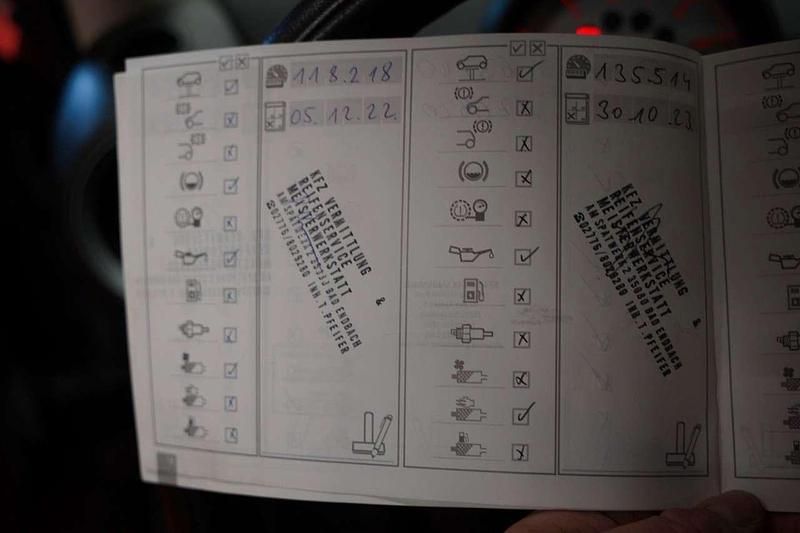 118.218
05. 12. 22.
KFZ VERMITTLUNG &
REIFENSERVICE
MEISTERWERKSTATT
BAD ENDBACH
02776/8029280 INH. T. PFEIFER
135.514
30 10 23
KFZ VERMITTLUNG &
REIFENSERVICE
MEISTERWERKSTATT
AM SPATWERK 2 35080 BAD ENDBACH
INH. T. PFEIFER